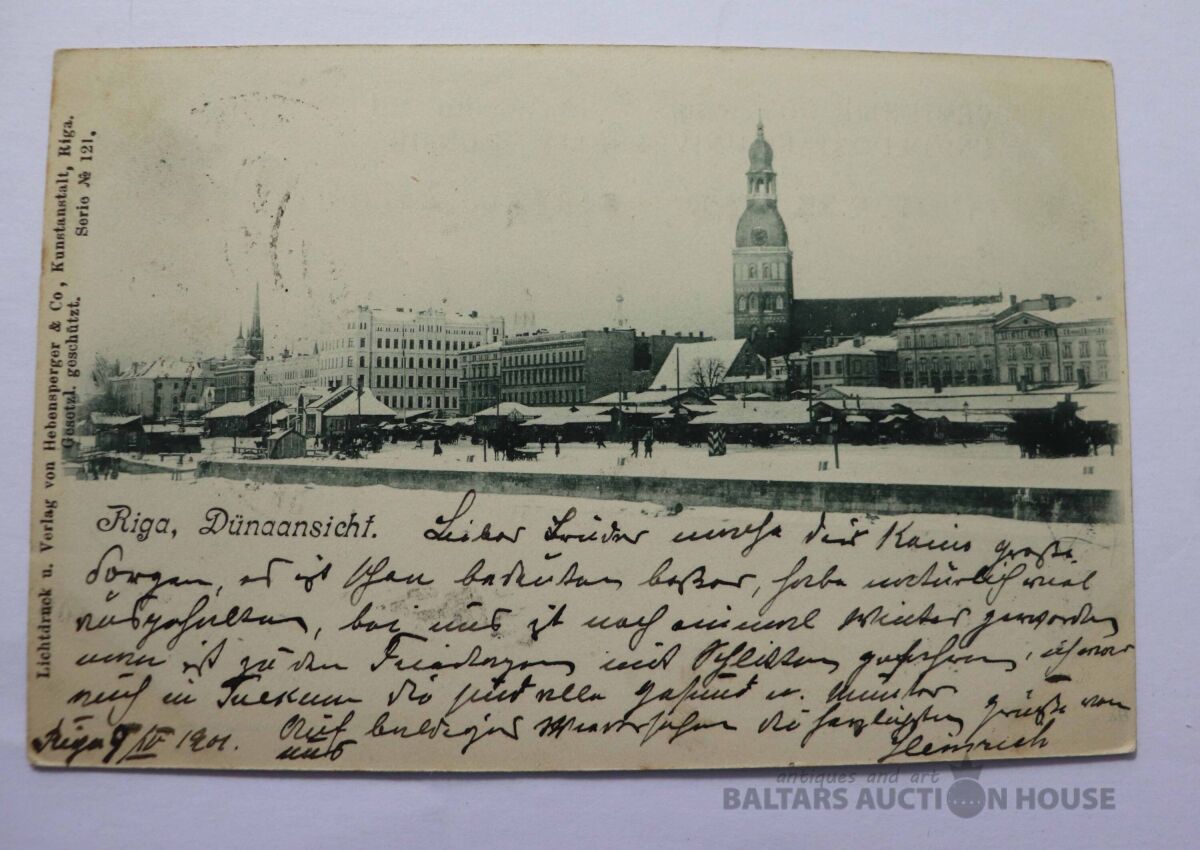 Lichtdruck u. Verlag von Hebensperger & Co, Kunstanstalt, Riga.
Gesetzl. geschützt. Serie № 121.
Riga, Dünaansicht.
Lieber Bruder mache dir keine große
Sorgen, es ist schon bedeuten besser, habe natürlich viel
ausgehalten, bei uns ist noch einmal Winter geworden
man ist zu den Feiertagen mit Schlitten gefahren, ich war
auch in die sind alle gesund u. munter
Auf baldiges Wiedersehen die herzlichsten Grüße von
uns Heinrich
Riga 9/IV 1901.
antiques and art
BALTARS AUCTION HOUSE